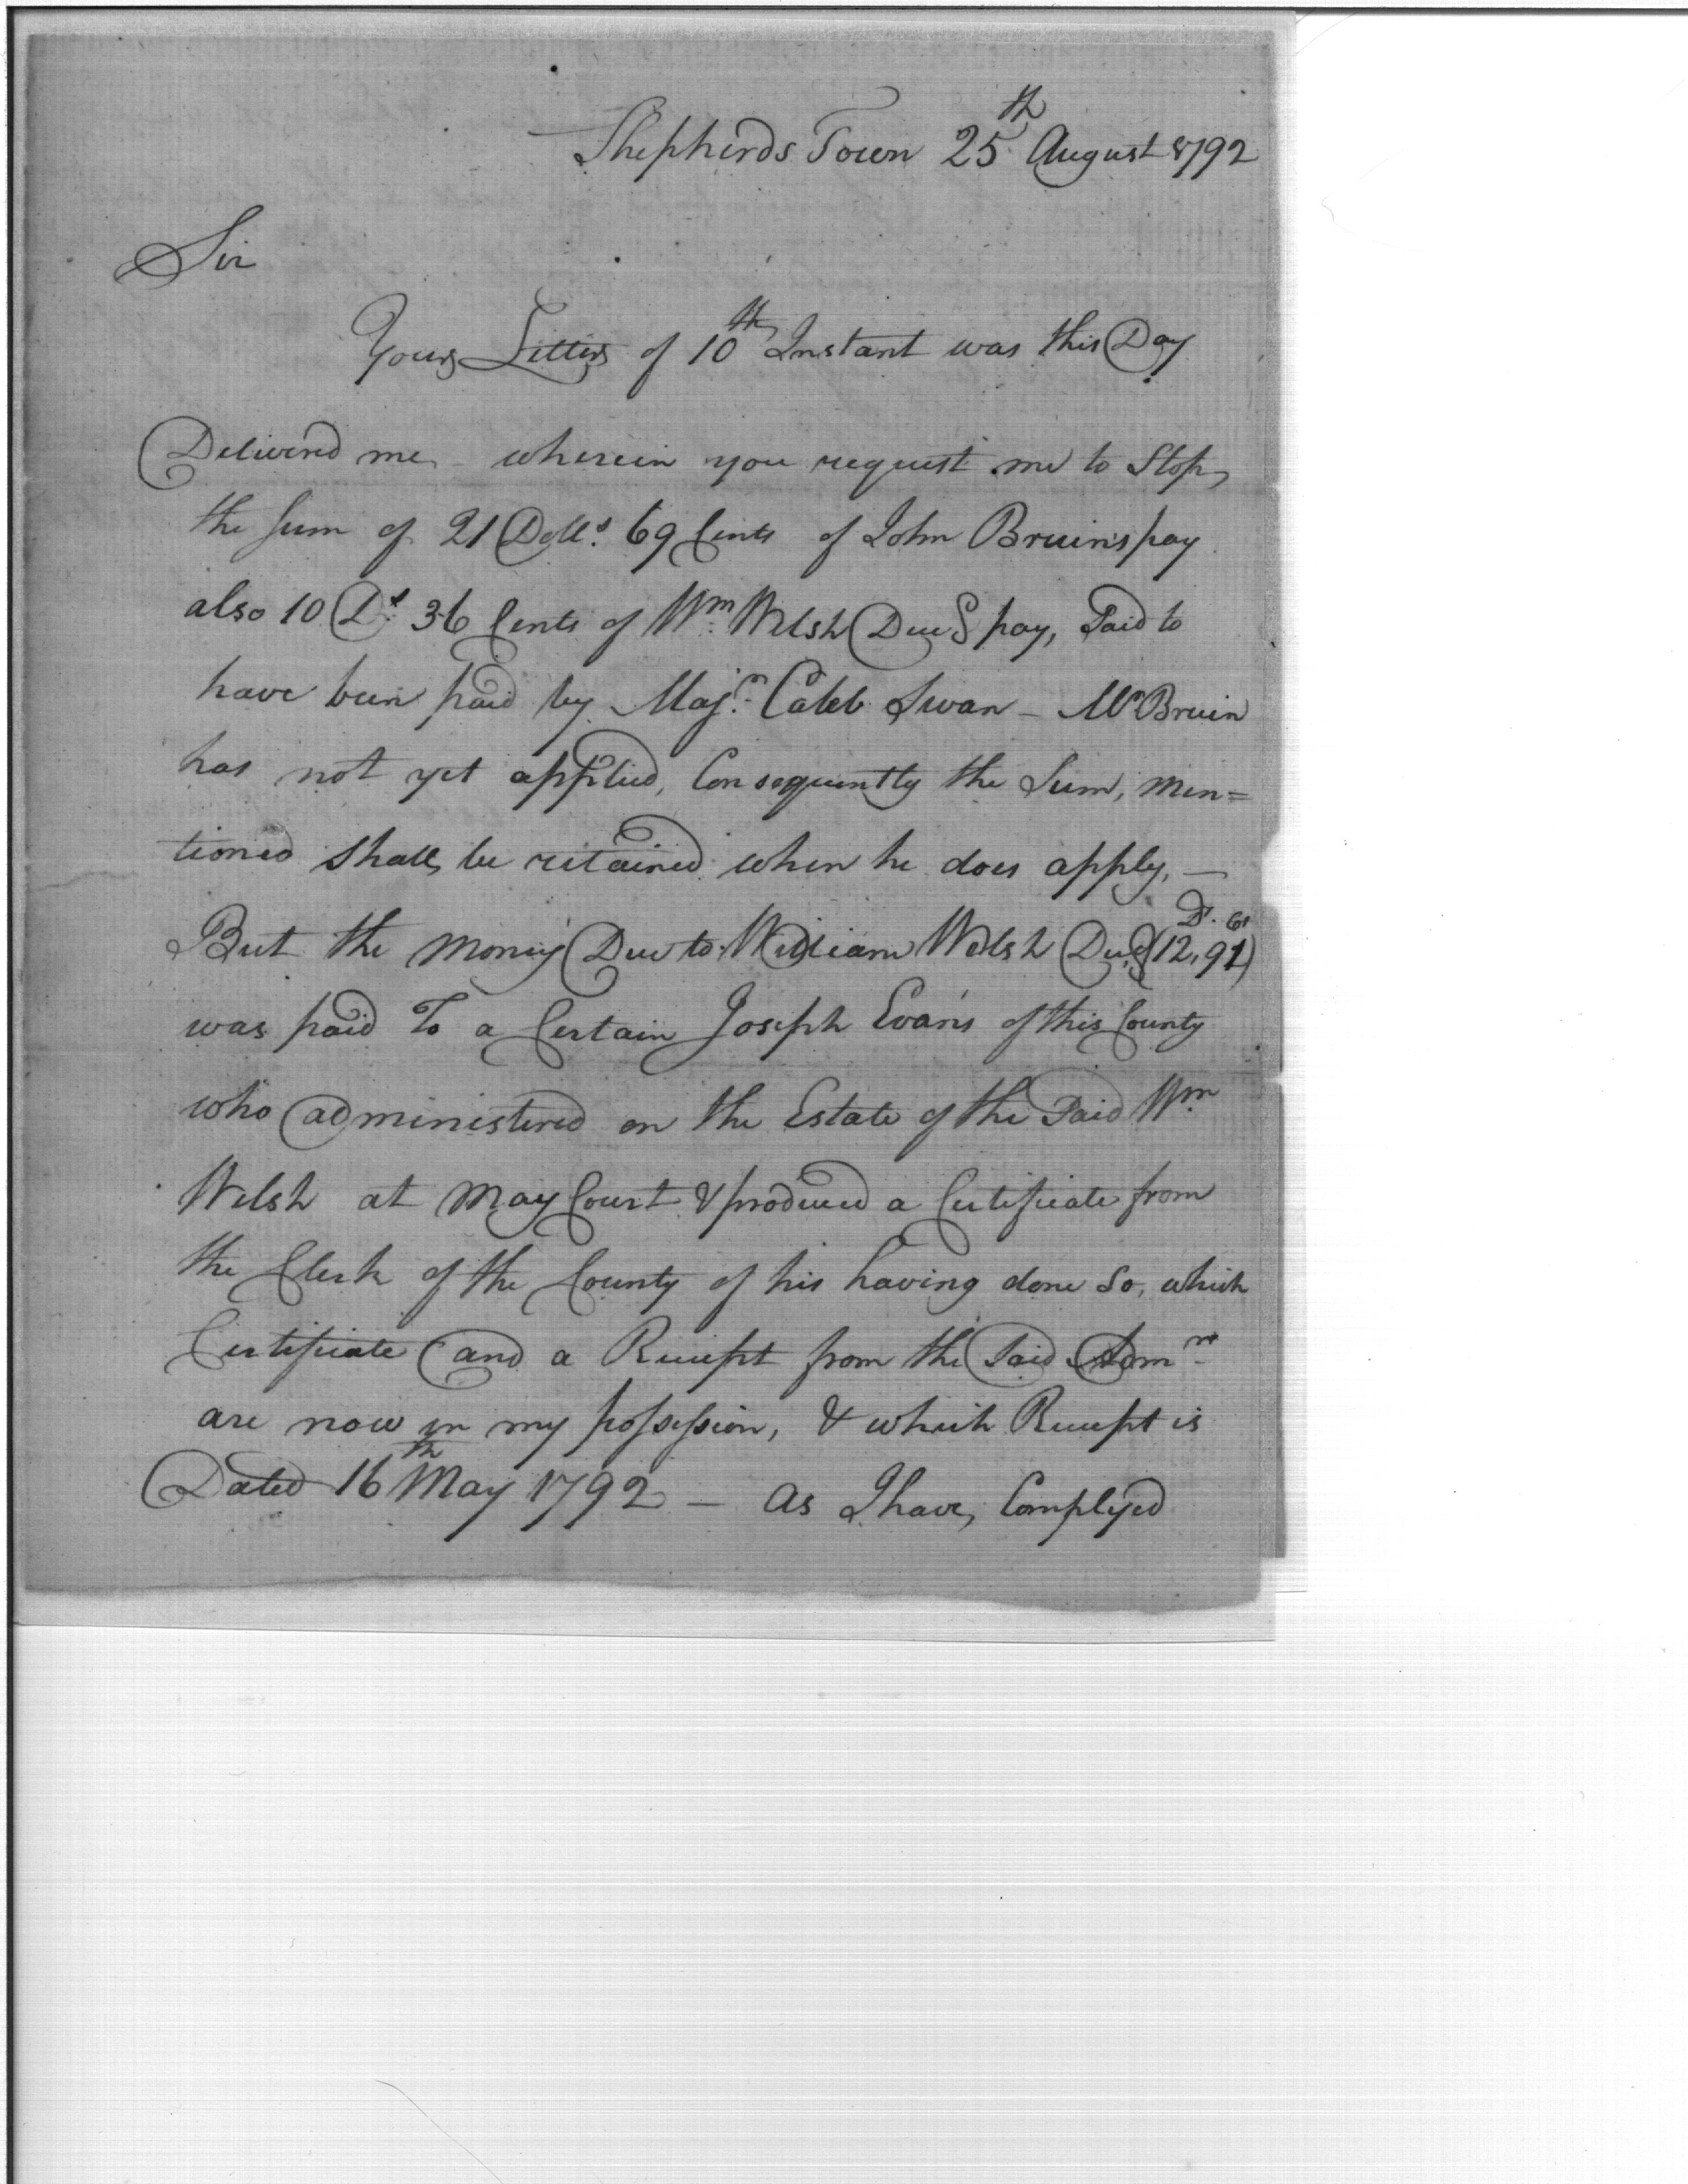 Shepherds Town 25th August 1792
Sir
Your Letter of 10th Instant was this Day
Delivered me wherein you request me to Stop
the Sum of 21 Dolls. 69 Cents of John Bruins pay
also 10 Ds. 36 Cents of Wm. Welsh Decd pay, Said to
have been paid by Majr. Caleb Swan – Mr Bruin
has not yet applied, Consequently the Sum, men=
tioned shall be retained when he does apply. —
But the money Due to William Welsh Decd (12,91) Ds. Cts
was paid To a Certain Joseph Evans of this County
who administered on the Estate of the Said Wm
Welsh at May Court & produced a Certificate from
the Clerk of the County of his having done So, which
Certificate and a Receipt from the Said Admr
are now in my possession, & which Receipt is
Dated 16th May 1792 – as I have Complyed